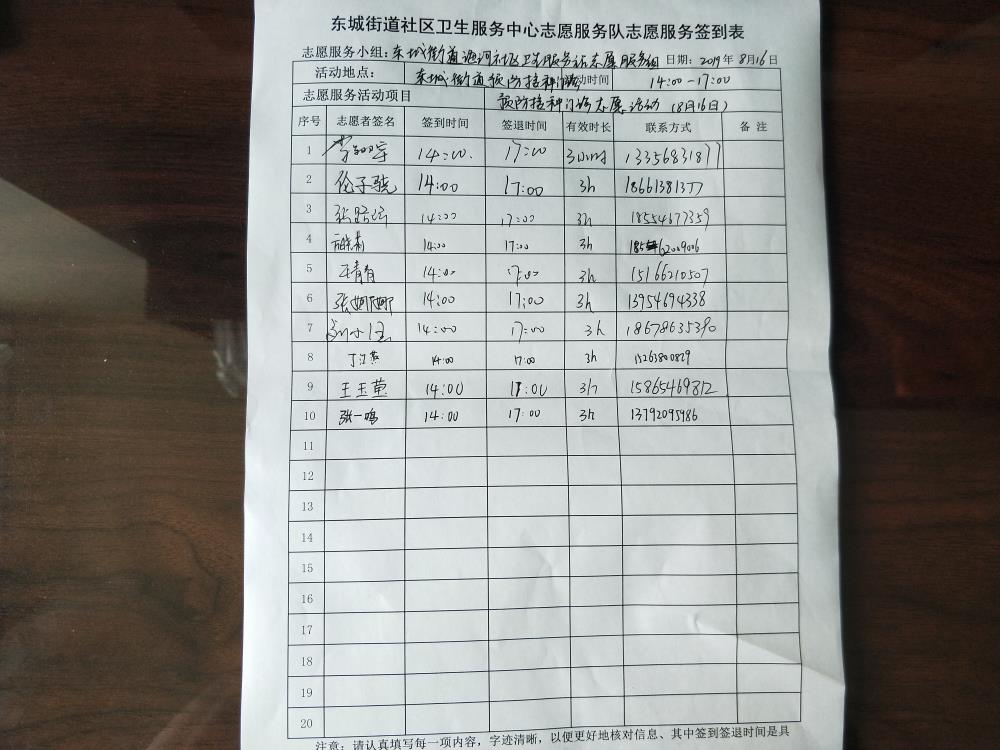 东城街道社区卫生服务中心志愿服务队志愿服务签到表
志愿服务小组：东城街道 社区卫生服务站志愿服务组 日期：2019年8月16日
活动地点： 东城街道预防接种门诊 动时间 14:00-17:00
志愿服务活动项目 预防接种门诊志愿活动（8月16日）
序号 志愿者签名 签到时间 签退时间 有效时长 联系方式 备注
1 14:00. 17:00 3小时 13356831877
2 伦子骁 14:00 17:00 3h 18661381377
3 张 14:00 17:00 3h 18554677359
4 14:00 17:00 3h
5 14:00 17:00 3h 15166210507
6 张娜娜 14:00 17:00 3h 13954694338
7 14:00 17:00 3h 18678635390
8 丁 14:00 17:00 3h 15263800829
9 王玉莹 14:00 17:00 3h 15865469812
10 张一鸣 14:00 17:00 3h 13792095986
11
12
13
14
15
16
17
18
19
20
注意：请认真填写每一项内容，字迹清晰，以便更好地核对信息、其中签到签退时间是具